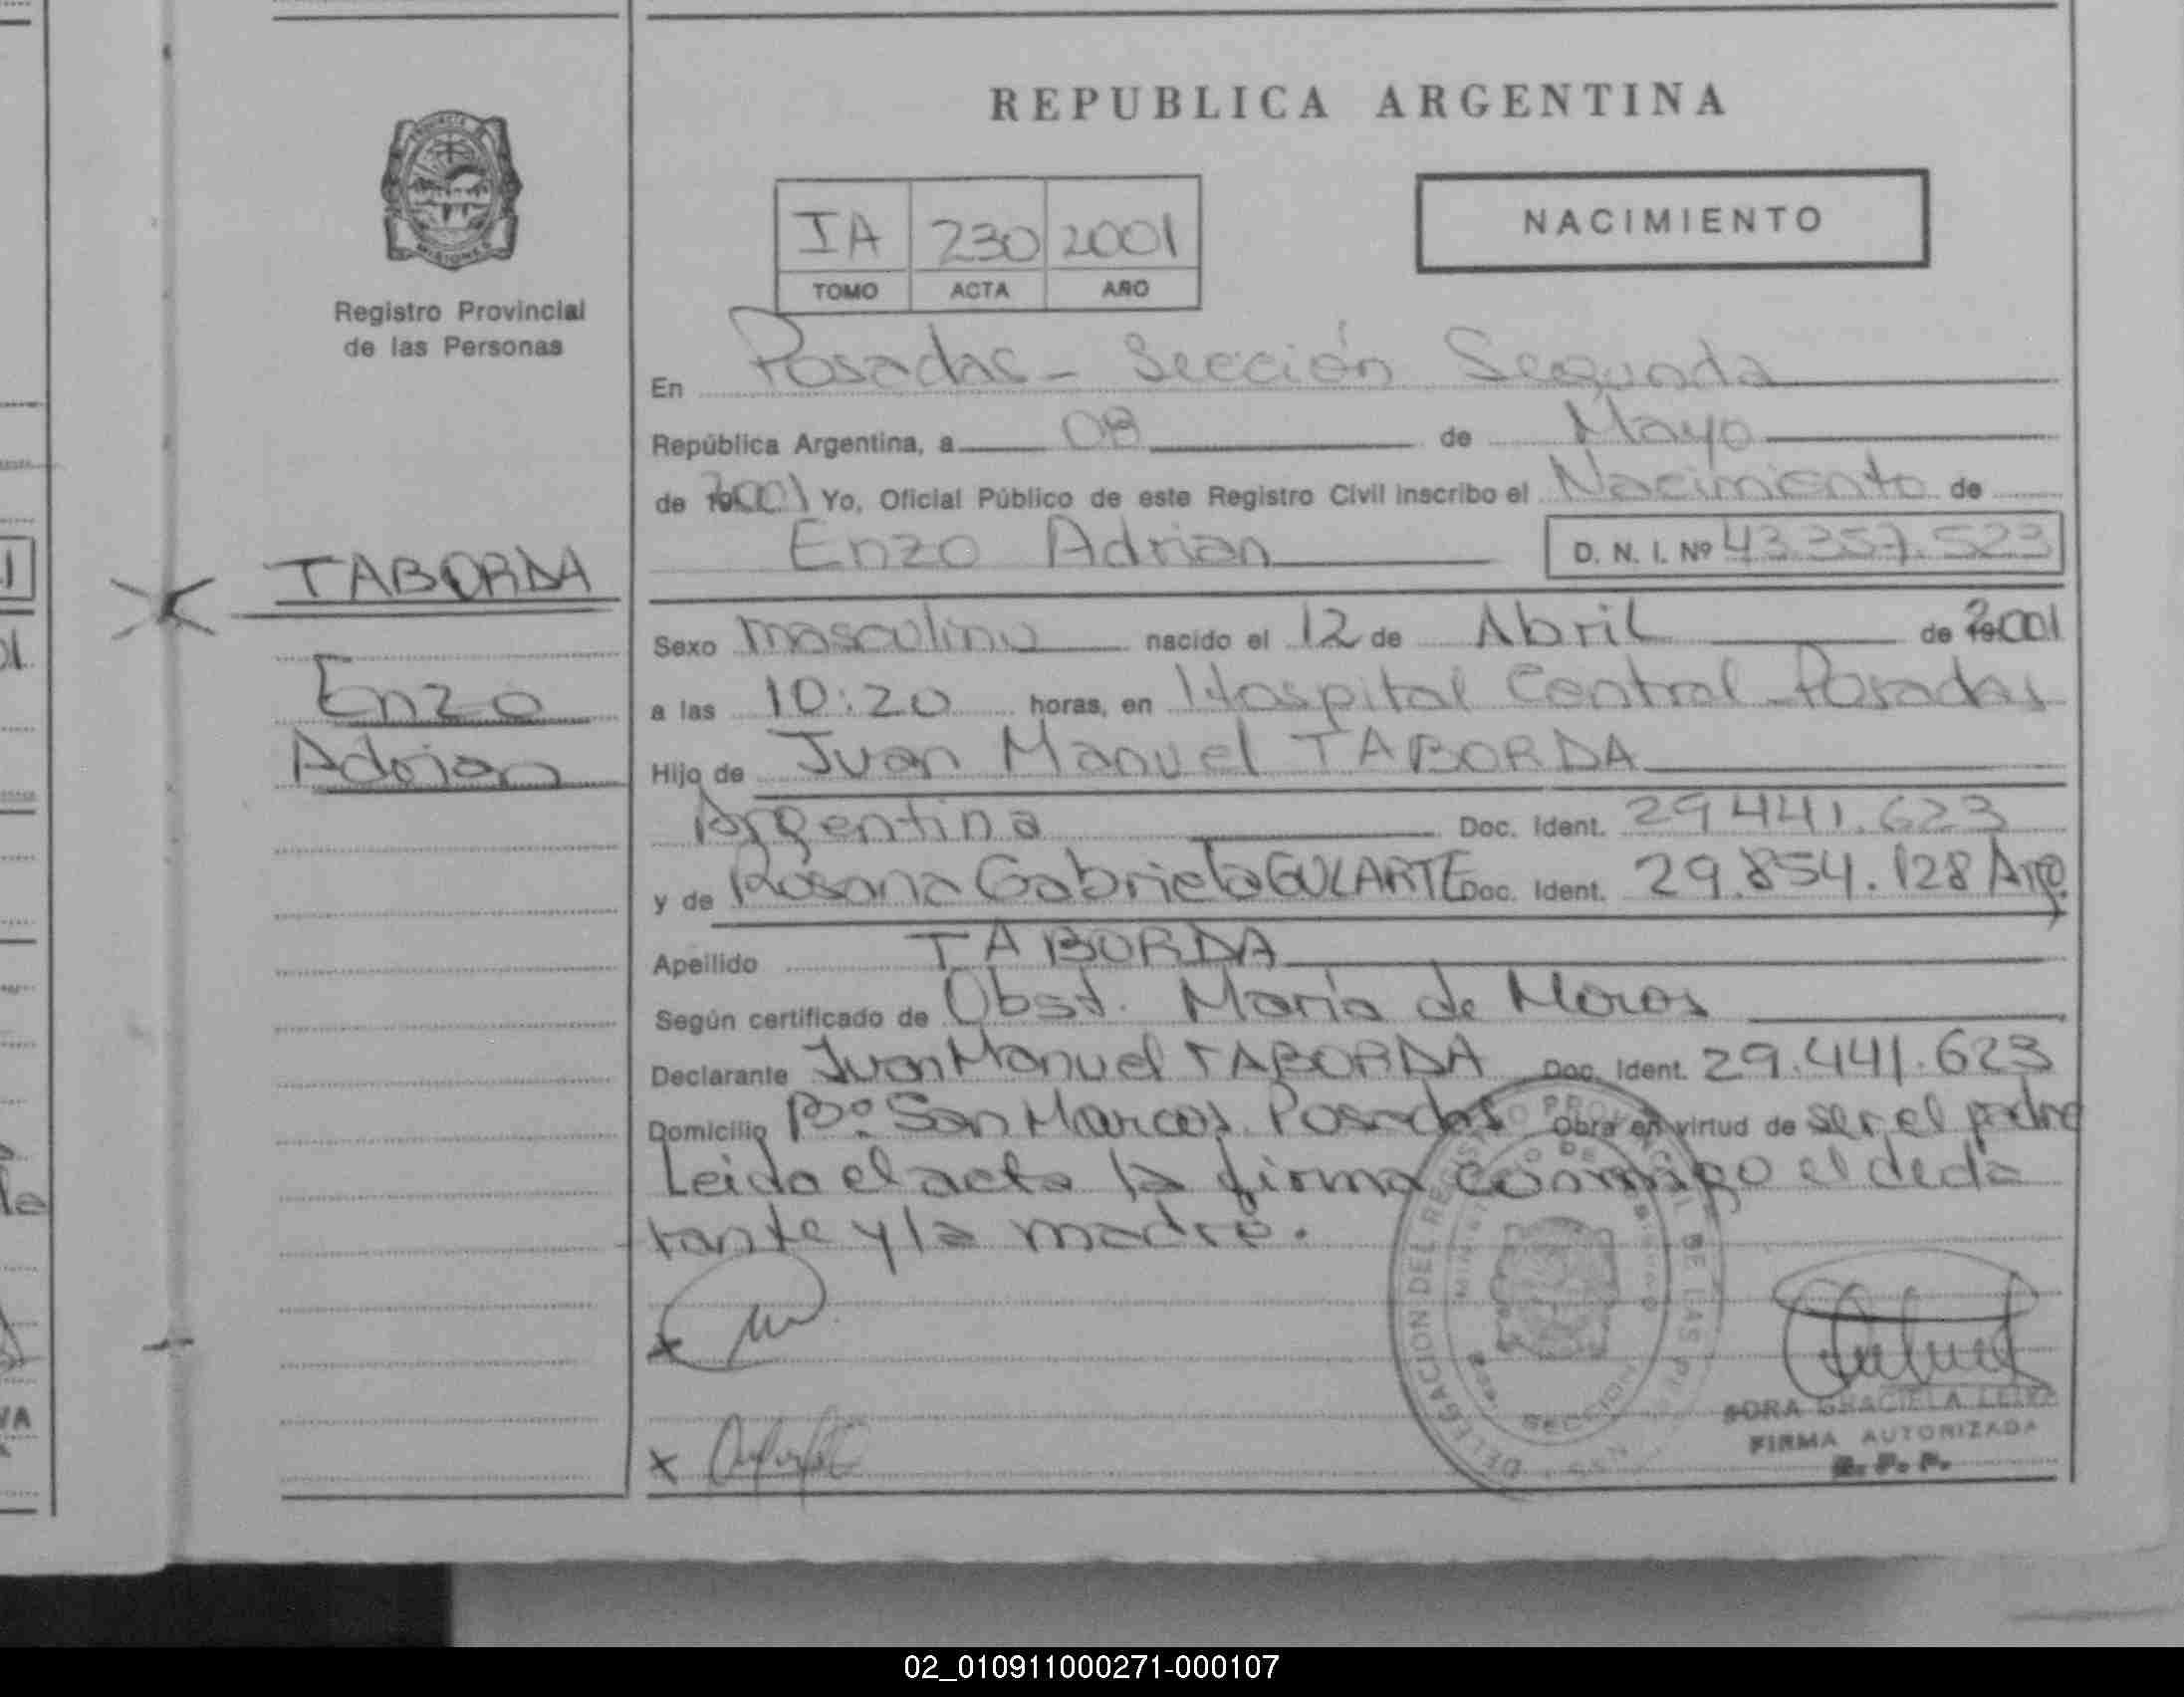 REPUBLICA ARGENTINA
PROVINCIA DE
MISIONES
Registro Provincial
de las Personas
IA 230 2001
TOMO ACTA AÑO
NACIMIENTO
En Posadas - Sección Segunda
República Argentina, a 08 de Mayo
de 2001 Yo, Oficial Público de este Registro Civil inscribo el Nacimiento de
Enzo Adrian D. N. I. Nº 43.357.523
TABORDA
Enzo
Adrian
Sexo masculino nacido el 12 de Abril de 2001
a las 10:20 horas, en Hospital Central - Posadas
Hijo de Juan Manuel TABORDA
Argentina Doc. Ident. 29.441.623
y de Rosana Gabriela GULARTE Doc. Ident. 29.854.128 Arg.
Apellido TABORDA
Según certificado de Obst. María de
Declarante Juan Manuel TABORDA Doc. Ident. 29.441.623
Domicilio Bº San Marcos Posadas Obra en virtud de ser el padre
Leida el acta la firma conmigo el decla
rante y la madre.
DELEGACION DEL REGISTRO PROVINCIAL DE LAS
SECCION
GRACIELA
FIRMA AUTORIZADA
R. P. P.
02_010911000271-000107